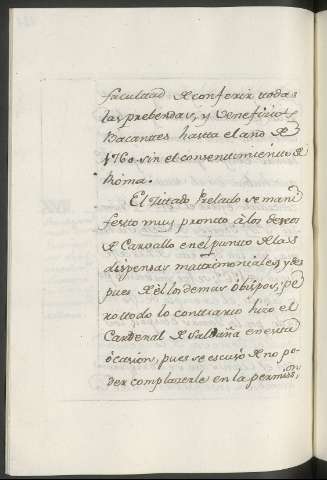 facultad de conferir todas
las prebendas, y Veneficios
Bacantes hasta el año de
1760 sin el consentimiento de
Roma.
El Prelado se mani
festto muy prontto à los deseos
de Carvallo en el puntto de las
dispensas mattrimoniales, y des
pues de èl los demas obispos, pe
ro ttodo lo conttrario hizo el
Cardenal de Saldaña en estta
òcasion, pues se escusò de no po
der complacerle en la permision,